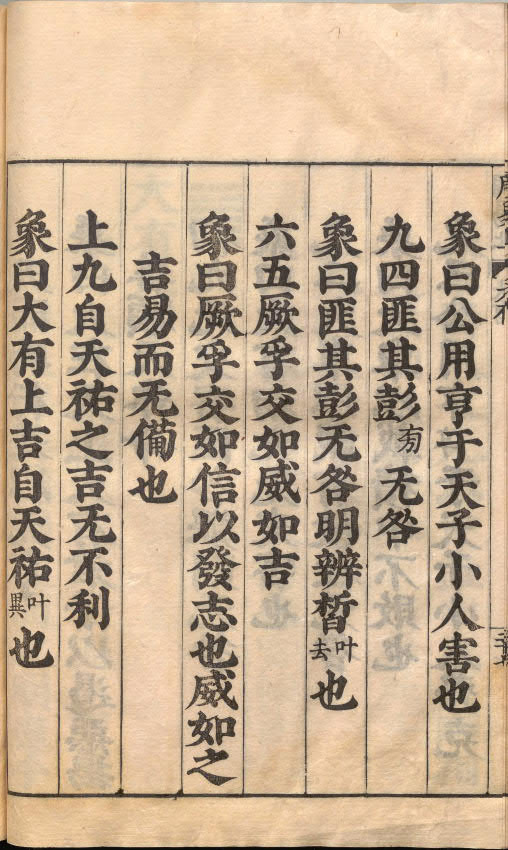 象曰公用亨于天子小人害也
九四匪其彭旁无咎
象曰匪其彭无咎明辨晳叶去也
六五厥孚交如威如吉
象曰厥孚交如信以發志也威如之
吉易而无備也
上九自天祐之吉无不利
象曰大有上吉自天祐叶異也